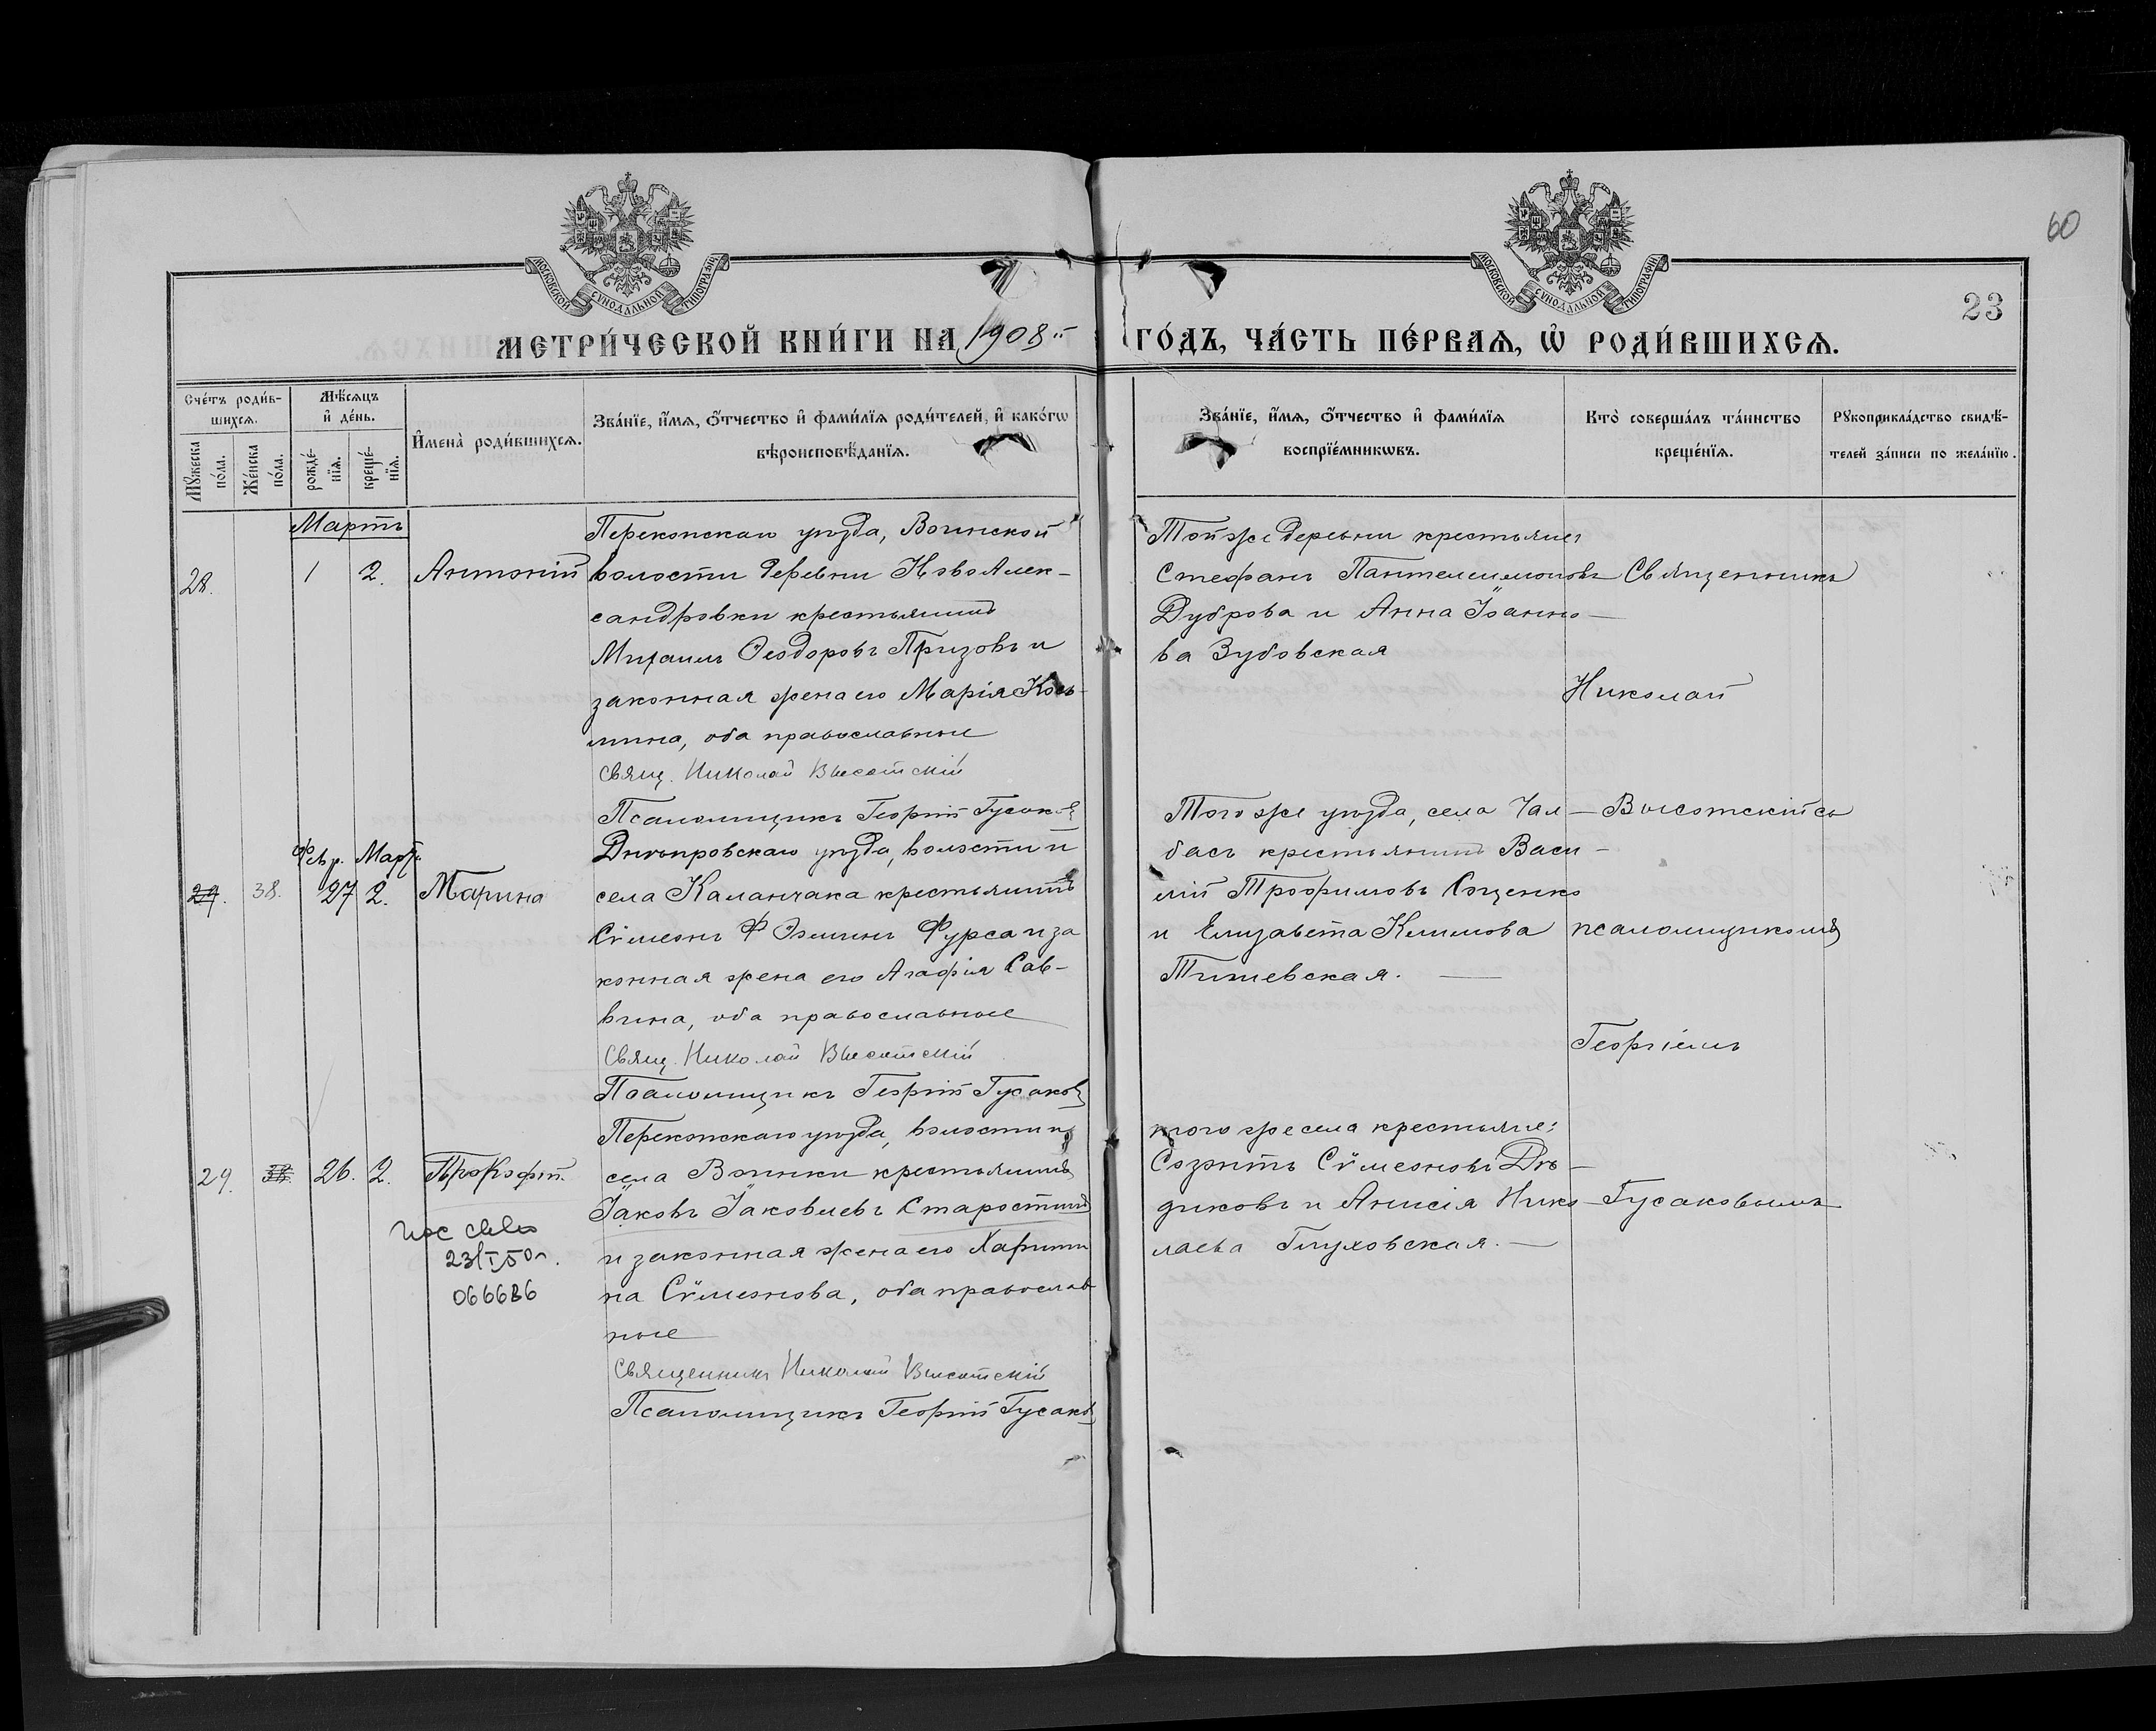 60
23
МОСКОВСКОЙ СѴНОДАЛЬНОЙ ТИПОГРАФІИ
МОСКОВСКОЙ СѴНОДАЛЬНОЙ ТИПОГРАФІИ
МЕТРИ́ЧЕСКОЙ КНИ́ГИ НА 1908й ГО́ДЪ, ЧА́СТЬ ПЕ́РВАѦ, Ѡ҆ РОДИ́ВШИХСѦ.
Сче́тъ роди́в-
шихсѧ.
Мꙋжеска по́ла.
Же́нска по́ла.
Мѣ́сѧцъ
и҆ де́нь.
рожде́-нїѧ.
креще́-нїѧ.
И҆мена̀ роди́вшихсѧ.
Зва́нїе, и҆́мѧ, ѻ҆́тчество и҆ фами́лїѧ роди́телей, и҆ како́гѡ
вѣроисповѣ́данїѧ.
Зва́нїе, и҆́мѧ, ѻ҆́тчество и҆ фами́лїѧ
воспрїе́мникѡвъ.
Кто̀ соверша́лъ та́инство
креще́нїѧ.
Рꙋкоприкла́дство свидѣ́-
телей за́писи по жела́нїю.
Мартъ
28.
1 2.
Антоній
Перекопскаго уѣзда, Воинской
волости деревни НовоАлек-
сандровки крестьянинъ
Михаилъ Ѳеодоровъ Призовъ и
законная жена его Марія Кось-
мина, оба православные
Свящ. Николай Высотскій
Псаломщикъ Георгій Гусаковъ
Той же деревни крестьяне:
Стефанъ Пантелеимоновъ
Дуброва и Анна Іоанно-
ва Зубовская
Священникъ
Николай
Высотскій съ
псаломщикомъ
Георгіемъ
Гусаковымъ
Февр. Марта
29. 38.
27 2.
Марина
Днѣпровскаго уѣзда, волости и
села Каланчака крестьянинъ
Сѵмеонъ Фурса и за
конная жена его Агафія Сав-
вина, оба православные
Свящ. Николай Высотскій
Псаломщикъ Георгій Гусаковъ
Того же уѣзда, села Чал-
басъ крестьянинъ Васи-
лій Трофимовъ Соценко
и Елизавета Климова
Тишевская.
29.
26. 2.
Прокофій.
23/I 50 г.
066686
Перекопскаго уѣзда, волости и
села Воинки крестьянинъ
Іаковъ Іаковлевъ Старостинъ
и законная жена его Харити
на Сѵмеонова, оба православ
ные
Священникъ Николай Высотскій
Псаломщикъ Георгій Гусаковъ
того же села крестьяне:
Созонтъ Сѵмеоновъ Дѣ-
диковъ и Анисія Нико-
лаева Глуховская.